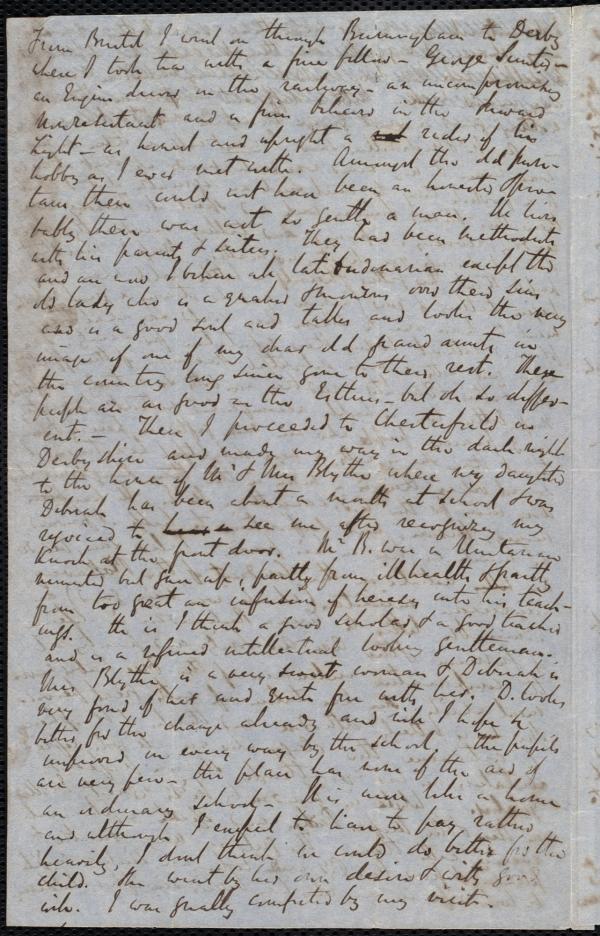 From Bristol I went on through Birmingham to Derby
where I took tea with a fine fellow - George Sunter -
an Engine driver on the railway - an uncompromising
Nonresistant and a firm believer in the Inward
Light - as honest and upright a rider of his
hobby as I ever met with. Amongst the old puri-
tans there could not have been an honester & pro-
bably there was not so gentle a man. He lives
with his parents & sisters. They had been Methodists
and are now I believe all latitudinarian except the
old lady who is a quaker & mourns over their sins
and is a good soul and talks and looks the very
image of one of my dear old grand aunts in
the country long since gone to their rest. These
people are as good as the Estlins - but oh so differ-
ent. - Then I proceeded to Chesterfield in
Derbyshire and made my way in the dark night
to the house of Mr & Mrs Blythe where my daughter
Deborah has been about a month at school & was
rejoiced to see me after recognizing my
knock at the front door. Mr B. was a Unitarian
minister but gave up, partly from ill health & partly
from too great an infusion of heresy into his teach-
ings. He is I think a good scholar & a good teacher
and is a refined intellectual looking gentleman.
Mrs Blythe is a very sweet woman & Deborah is
very fond of her and quite free with her. D. looks
better for the change already and will I hope be
improved in every way by the school. The pupils
are very few - the place has none of the air of
an ordinary school - It is more like a home
and although I expect to have to pay rather
heavily, I don't think we could do better for the
child. She went by her own desire & with good
will. I was greatly comforted by my visit.